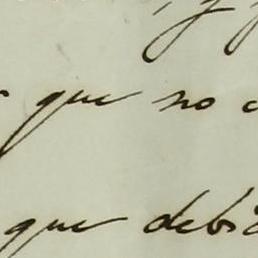 que no
que debi